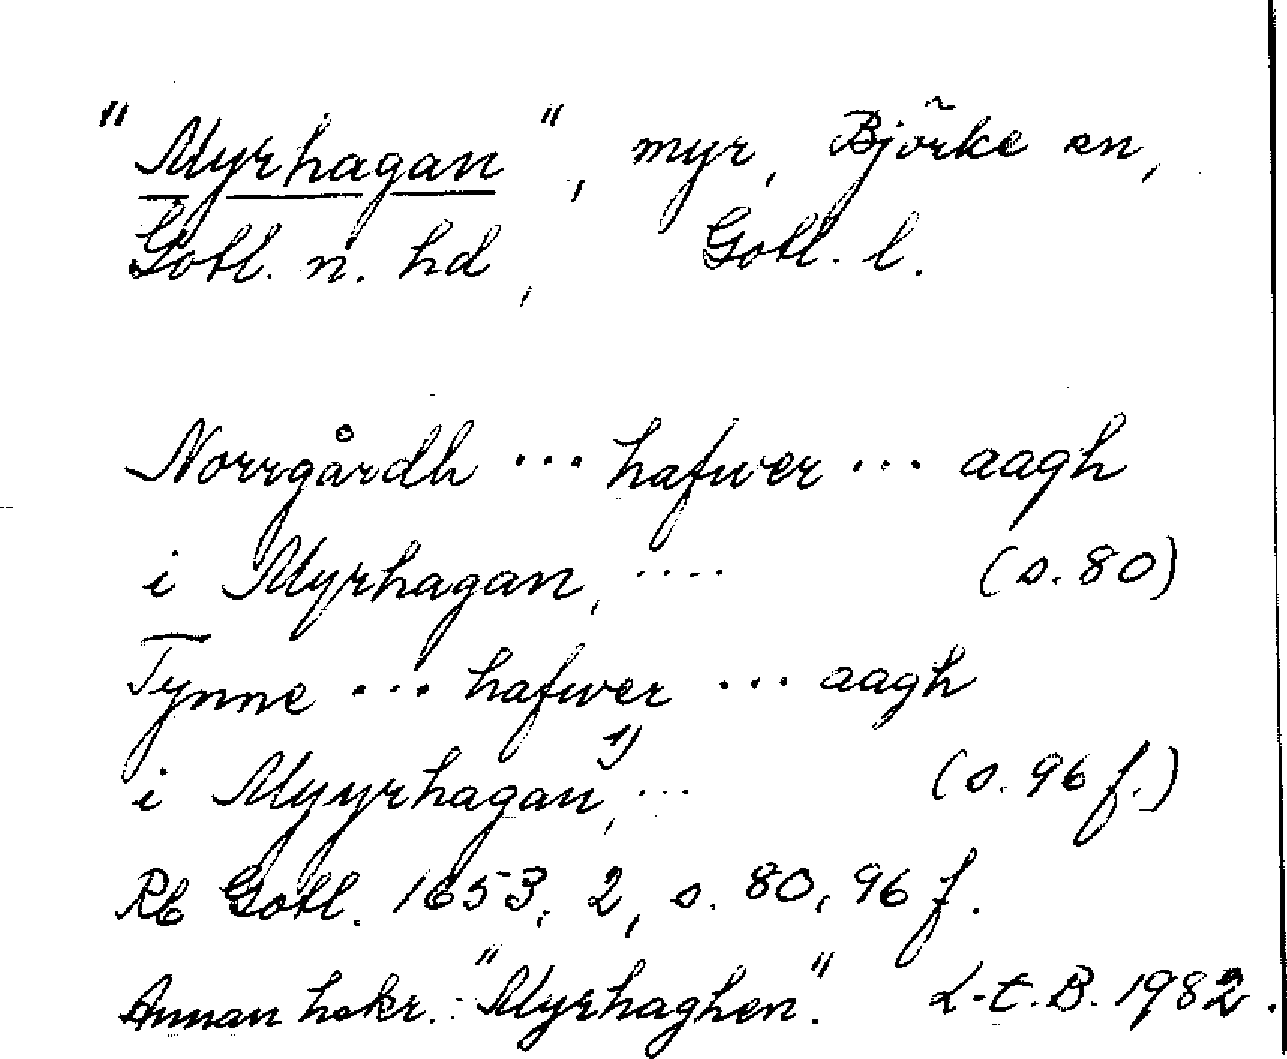 "Myrhagan", myr, Björke sn,
Gotl. n. hd, Gotl. l.
Norrgårdh ... hafwer ... aagh
i Myrhagan, .... (s. 80)
Tynne ... hafwer ... aagh
i Myyrhagan¹⁾, ... (s. 96 f.)
Rb Gotl. 1653, 2, s. 80, 96 f.
Annan hskr.: "Myrhaghen". L-t. B. 1982.